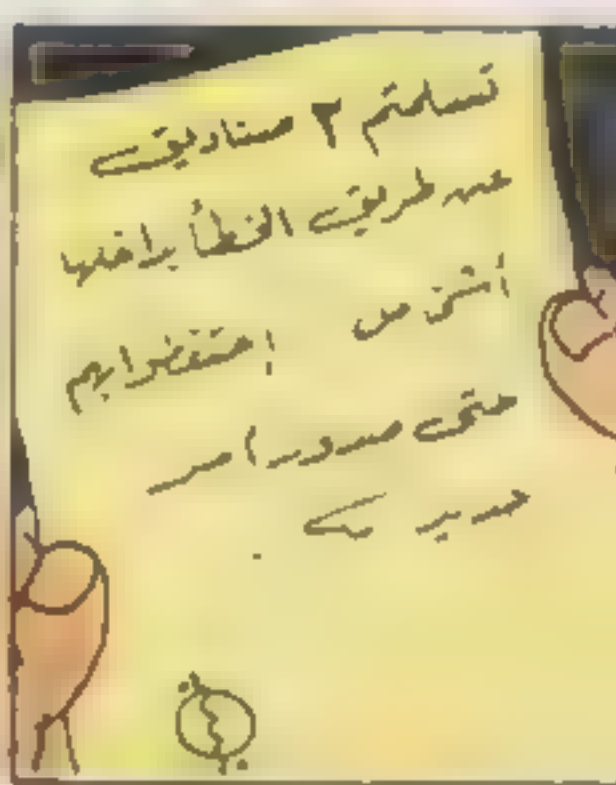 تسلمتم ٢ صناديق
عن طريق الخطأ بداخلها
أشخاص احتفظوا بهم
حتى صدور أمر
جديد